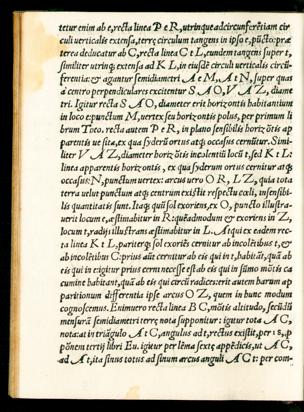 tetur enim ab e, recta linea P e R, utrinque ad circunferētiam cir
culi uerticalis extensa, terrę circulum tangens in ipso e, pūcto: præ
terea deducatur ab C, recta linea C t L, eundem tangens super t,
similiter utrinq; extensa ad K L, in eiusdē circuli uerticalis circū-
ferentia: & agantur semidiametri A e M, A t N, super quas
à centro perpendiculares excitentur S A O, V A Z, diame
tri. Igitur recta S A O, diameter erit horizontis habitantium
in loco e: punctum M, uertex seu horizontis polus, per primum li
brum Theo. recta autem P e R, in plano sensibilis horizōtis ap
parentis ue sita, ex qua syderū ortus atq; occasus cernitur. Simi-
liter V A Z, diameter horizōtis incolentiū locū t, sed K t L:
linea apparentis horizontis, ex qua syderum ortus cernitur atq;
occasus: N, punctum uertex: arcus uero O R, L Z, quia tota
terra uelut punctum atq; centrum existit respectu cœli, insensibi-
lis quantitatis sunt. Itaq; quū sol exoriens, ex O, puncto illustra-
uerit locum e, æstimabitur in R: quēadmodum & exoriens in Z,
locum t, radijs illustrans æstimabitur in L. At qui ex eadem rec-
ta linea K t L, pariterq; sol exoriēs cernitur ab incolētibus t, &
ab incolētibus C: prius aūt cernitur ab eis qui in t, habitāt, quā ab
eis qui in e: igitur prius cerni necesse est ab eis qui in sūmo mōtis ca
cumine habitant, quā ab eis qui circū radices: erit autem harum ap
paritionum differentia ipse arcus O Z, quem in hunc modum
cognoscemus. Enimuero recta linea B C, mōtis altitudo, secūdū
mensurā semidiametri terrę nota supponitur: igitur tota A C,
nota: at in triāgulo A t C, angulus ad t, rectus existit, per 18, p
pōnem tertij libri Eu. igitur per lēma sextę appēdicis, ut A C,
ad A t, ita sinus totus ad sinum arcus anguli A C t: per com-